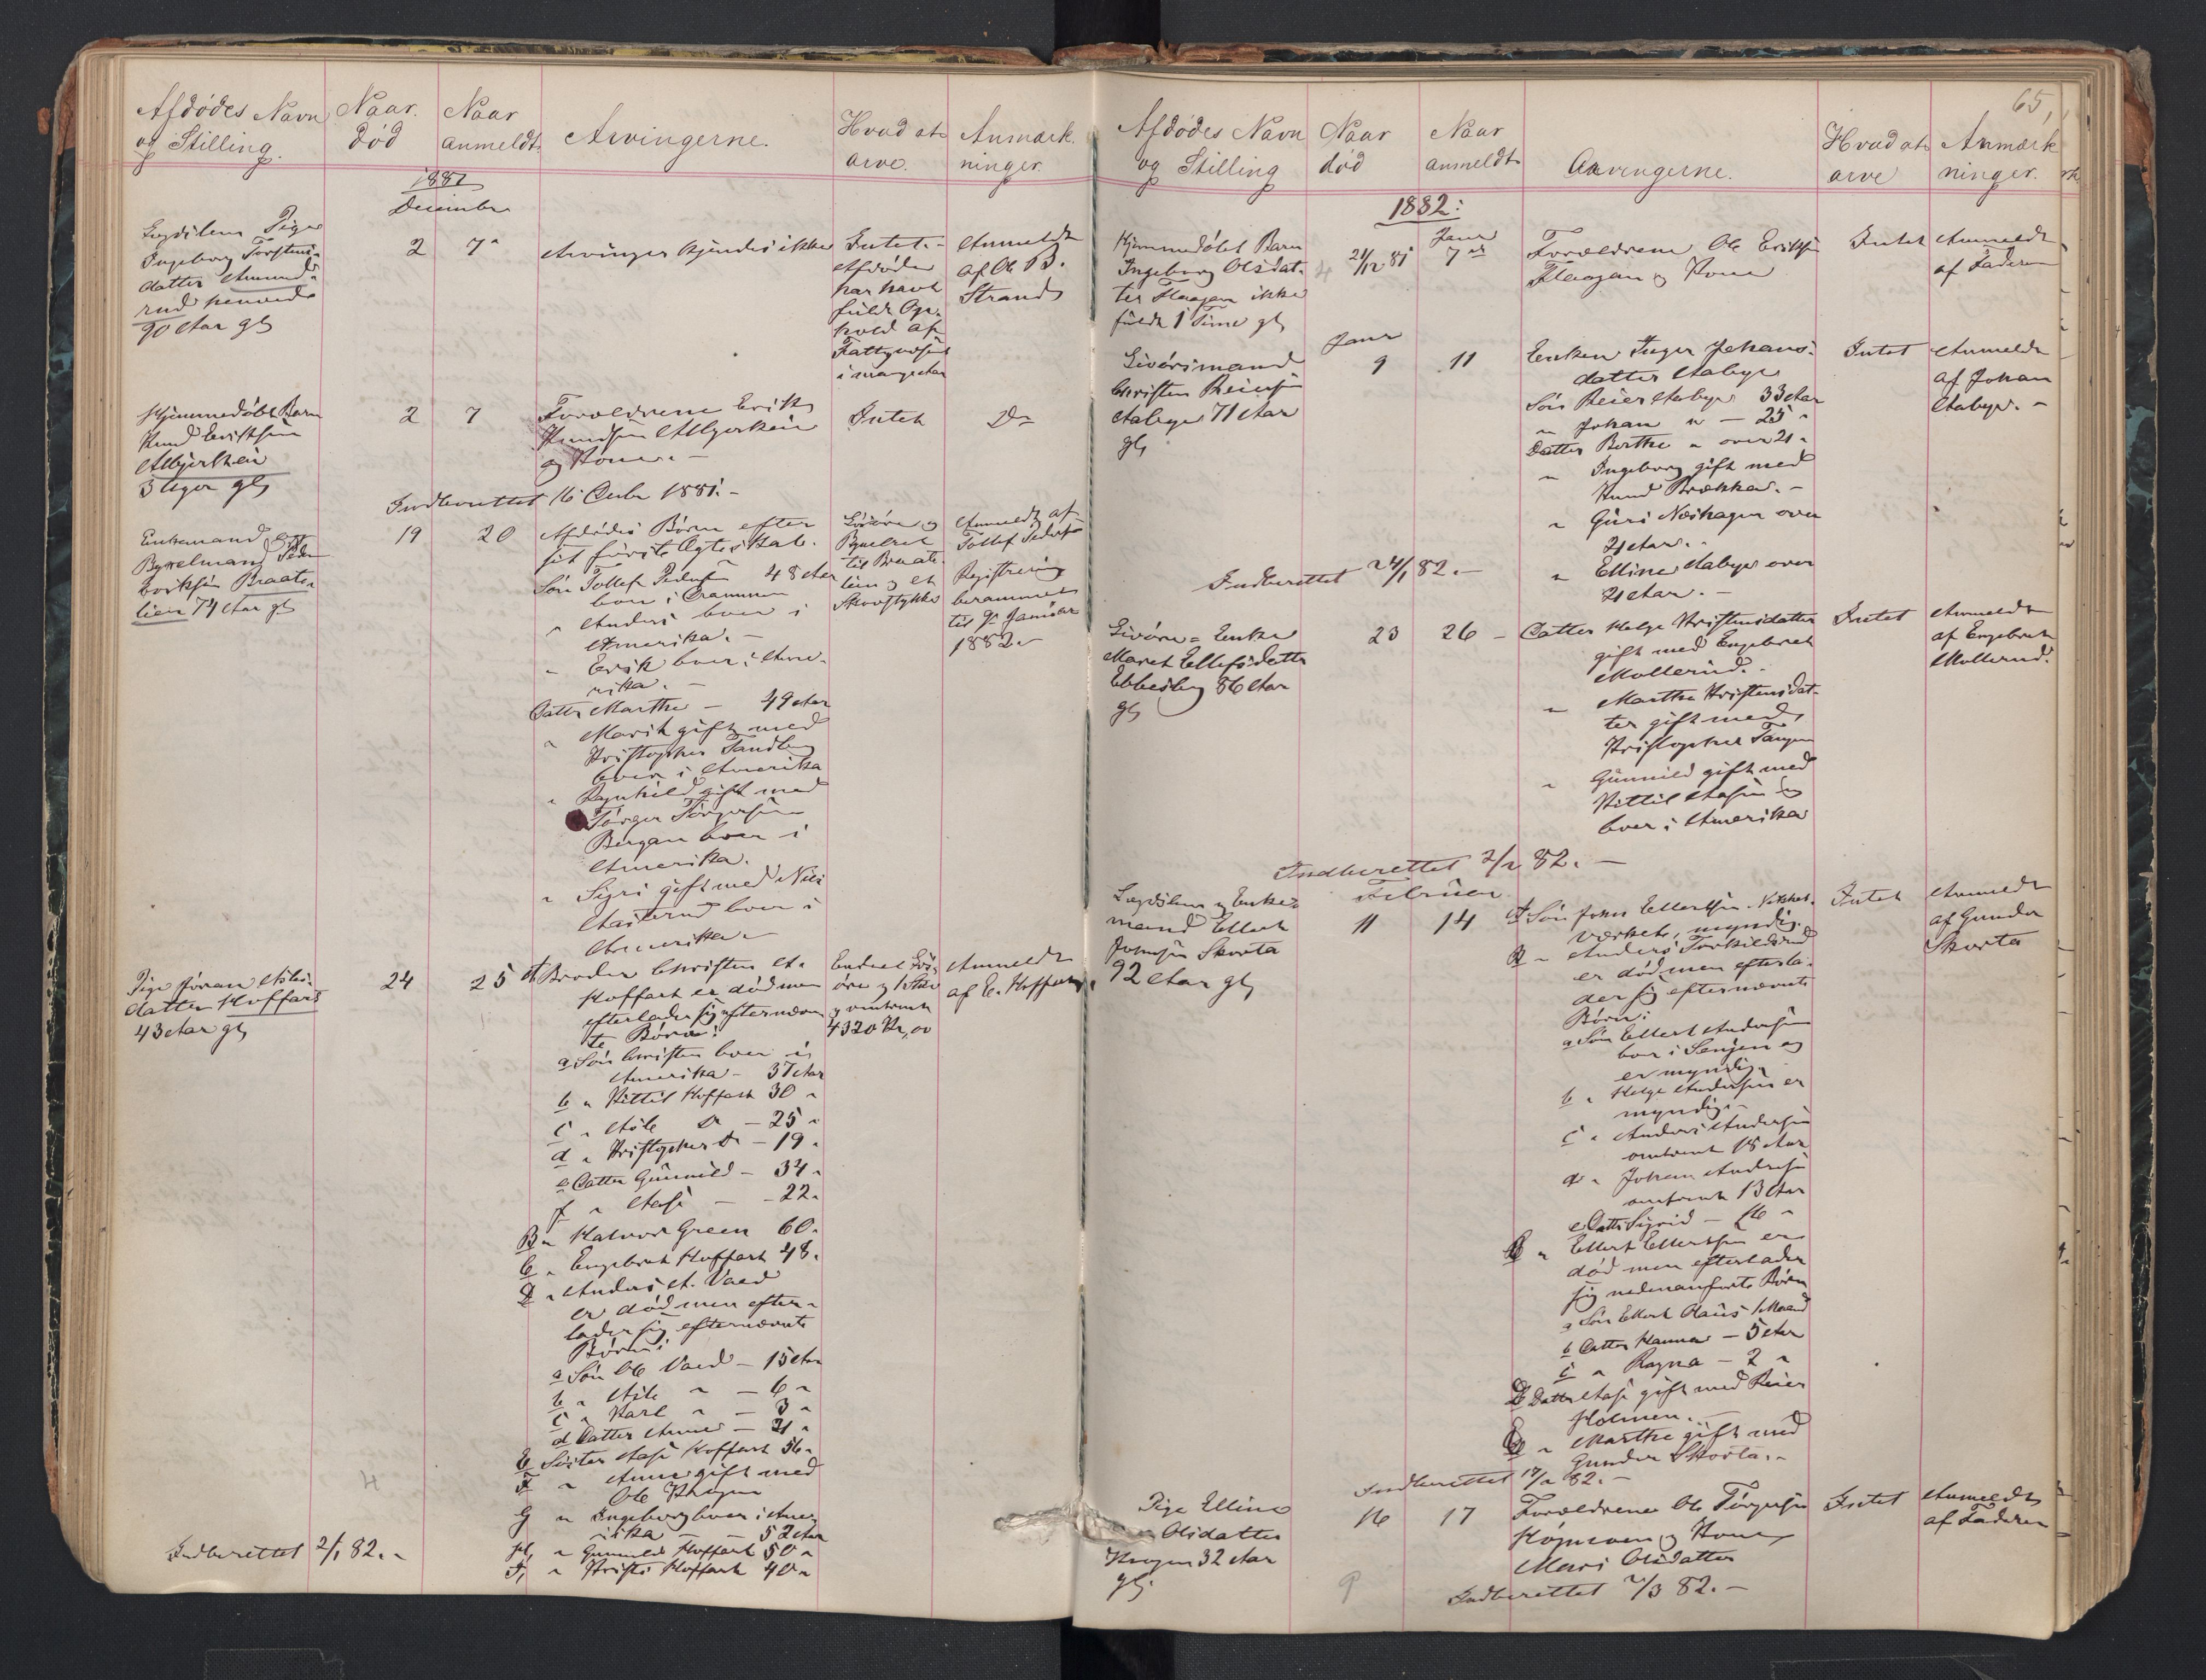 Afdødes Navn
og Stilling.
Naar.
død
Naar
anmeldt.
Arvingerne.
Hvad at
arve.
Anmærk.
ninger.
1881
December
Lægdslem Pige
Ingeborg Torstens-
datter Amund-
rud henved
90 Aar gl
2
7
Arvinger kjendes ikke
Intet.-
Afdøde
har havt
fuldt Op-
hold af
Fattigvæsenet
i mange Aar
Anmeldt
af Ole B.
Strand
Hjemmedøbt Barn
Knud Eriksen
3 Uger gl
2
7
Forældrene Erik
Knudsen
og Kone.-
Intet
Do
Indberettet 16 Decbr 1881.-
Enkemand og
Bygselmand Peder
Eriksen Braate-
lien 74 Aar gl
19
20
Afdødes Børn efter
sit første Ægteskab.
Søn Tollef Pedersen 48 Aar
boer i Drammen
" Anders boer i
Amerika.-
" Erik boer i Ame-
rika.-
Datter Marthe - 49 Aar
" Marit gift med
Kristopher Sandbeng
boer i Amerika
" Ragnhild gift med
Torger Torgersen
Bergan boer i
Amerika.
" Sigri gift med Nils
boer i
Amerika
Løsøre og
Bygselret
til Braate-
lien og et
Skovstykke
Anmeldt af
Tollef Pedersen
Registrering
berammet
til 9 Januar
1882.-
Pige Jøran Asles-
datter Hoffart
43 Aar gl
24
25
A Broder Christen A.
Hoffart er død men
efterlader sig efternævn
te Børn:
a Søn Christen boer i
Amerika - 37 Aar
b " Kittil Hoffart 30 "
c " Asle Do - 25 "
d " Kristopher Do - 19 "
e Datter Gunnild - 34 "
f " Aase - - 22 "
B " Halvor Green 60 "
C " Engebret Hoffart 48 "
D " Anders A. Vaed
er død men efter-
lader sig efternævnte
Børn:
a Søn Ole Vaed - 15 Aar
b " Asle " - 6 "
c " Karl " - 3 "
d Datter Anne - 21 "
E Søster Aase Hoffart 56 "
F " Anne gift med
Ole Krogen
G " Ingeborg boer i Ame-
rika - - 52 Aar
H, " Gunnild Hoffart 50 "
I, " Kristi Hoffart 40 "
Endeel Løs-
øre og
og omtrent
4320 Kr, 00
Anmeldt
af E. Hoffart
Indberettet 2/1 82.-
65,
Afdødes Navn
og Stilling
Naar
død
Naar
anmeldt
Arvingerne.
Hvad at
arve
Anmærk
ninger.
1882:
Hjemmedøbt Barn
Ingeborg Olsdat-
ter Flaagan ikke
fuldt 1 Time gl
21/12 81
Janr
7
Forældrene Ole Eriksen
Flaagan og Kone
Intet
Anmeldt
af Faderen
Livørsmand
Christen Reiersen
Aabye 71 Aar
gl
Janr
9
11
Enken Inger Johans-
datter Aabye
Søn Reier Aabye 33 Aar
" Johan " - 25 "
Datter Berthe " over 21 "
" Ingeborg gift med
Knud Brækka.-
" Guri Næshagen over
21 Aar.-
" Elline Aabye over
21 Aar.-
Intet
Anmeldt
af Johan
Aabye.-
Indberettet 24/1 82.-
Livøre-Enke
Marit Ellefsdatter
Ebbesberg 86 Aar
gl
23
26
Datter Helge Kristensdatter
gift med Engebret
Mollerud.-
" Marthe Kristensdat-
ter gift med
Kristopher Tangen
" Gunnild gift med
Kittil Aasen og
boer i Amerika
Intet
Anmeldt
af Engebret
Mollerud.
Indberettet 2/2 82.-
Februar
Lægdslem og Enke-
mand Ellert
Johnsen Skorta
92 Aar gl
11
14
A Søn John Ellertsen Nikkel-
værket, myndig.
B - Anders Torkildsrud
er død men efterla-
der sig efternævnte
Børn:
a Søn Ellert Andersen
bor i Senjen og
er myndig
b " Helge Andersen er
myndig.-
c " Anders Andersen
omtrent 18 Aar
d " Johan Andersen
omtrent 13 Aar
e Datter Sigrid - 16 "
C " Ellert Ellertsen er
død men efterlader
sig nedenanførte Børn
a Søn Ellert Olaus 1 Maaned
b Datter Hanna - 5 Aar
c " Ragna - 2 "
D Datter Aase gift med Reier
Holmen.-
E " Marthe gift med
Gunder Skorta.-
Intet
Anmeldt
af Gunder
Skorta
Indberettet 17/2 82.-
Pige Elline
Olsdatter
Krogen 32 Aar
gl.
16
17
Forældrene Ole Torgersen
og Kone
Mari Olsdatter
Intet
Anmeldt
af Faderen
Indberettet 2/3 82.-